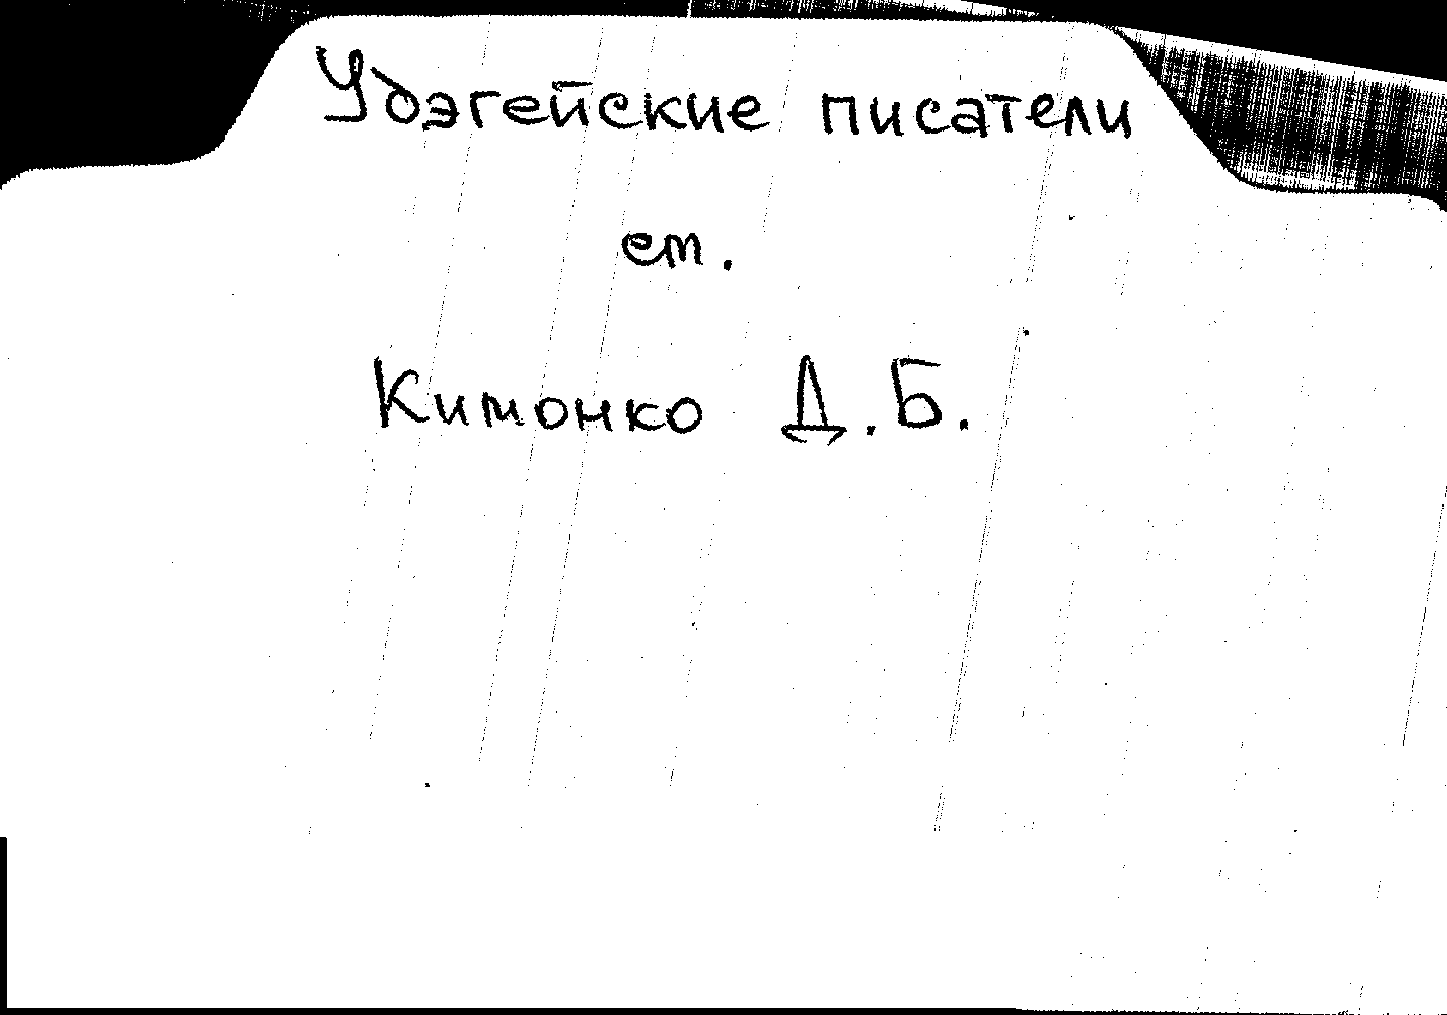 Удэгейские писатели
ст.
Кимонко Д.Б.